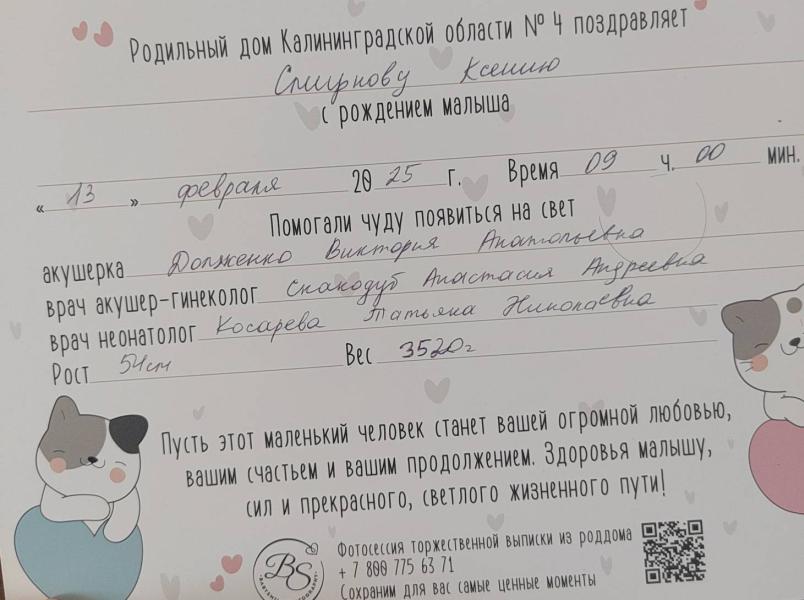 Родильный дом Калининградской области № 4 поздравляет
Смирнову Ксению
с рождением малыша
« 13 » февраля 20 25 г. Время 09 ч. 00 мин.
Помогали чуду появиться на свет
акушерка Долженко Виктория Анатольевна
врач акушер-гинеколог Скакодуб Анастасия Андреевна
врач неонатолог Косарева Татьяна Николаевна
Рост 54см Вес 3520г
Пусть этот маленький человек станет вашей огромной любовью,
вашим счастьем и вашим продолжением. Здоровья малышу,
сил и прекрасного, светлого жизненного пути!
BS
Фотосессия торжественной выписки из роддома
+ 7 800 775 63 71
Сохраним для вас самые ценные моменты